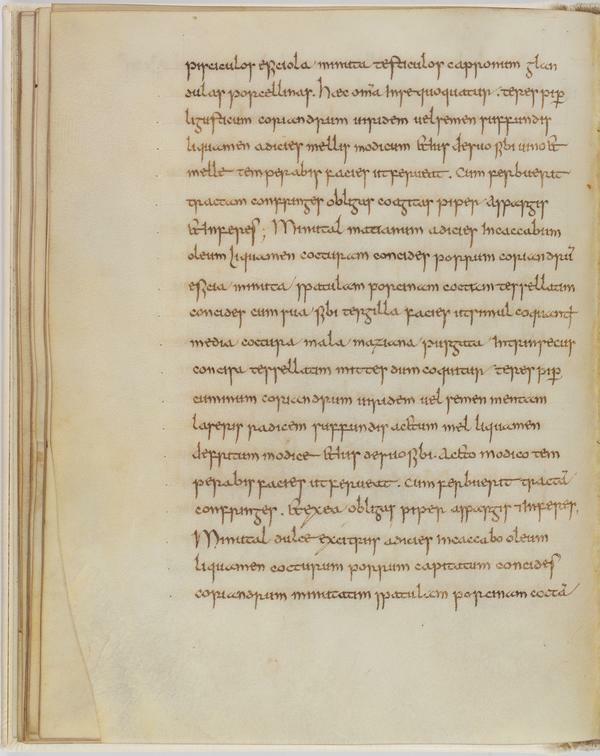 pisciculos esciola minuta testiculos caponum glan
dulas porcellinas. haec omĩa inse quoquatur. teres pip
ligusticum coriandrum uiridem uel semen suffundis
liquamen adicies mellis modicum & ius de suo sibi uino &
melle temperabis facies ut ferueat. Cum ferbuerit
tractam confringes obligas coagitas piper aspargis
& inferes; Minutal matianum adicies in caccabum
oleum liquamen cocturam concides porrum coriandrũ
escia minuta spatulam porcinam coctam tersellatim
concides cum sua sibi tergilla facies ut simul coquant
media coctura mala maziana purgata intrinsecus
concisa tersellatim mittes dum coquitur teres pip
cuminum coriandrum uiridem uel semen mentam
laseris radicem suffundisac&um mel liquamen
defritum modice & ius de suo sibi. Ac&o modico tem
perabis facies ut ferueat. Cum ferbuerit tractã
confringes. & ex ea obligas piper aspargis & inferes,
Minutal dulce ex citriis adicies in caccabo oleum
liquamen cocturum porrum capitatum concides
coriandrum minutatim spatulam porcinam coctã